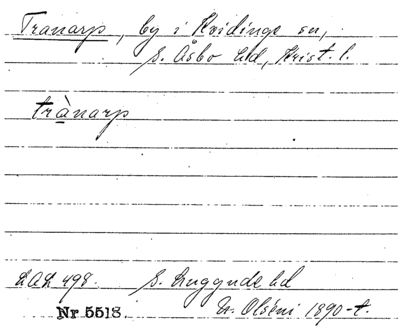 Tranarp, by i Kvidinge sn,
S. Åsbo hd, Krist. l.
trànarp
LAL 498. S. Luggude hd
N. Olséni 1890-t.
Nr 5518.